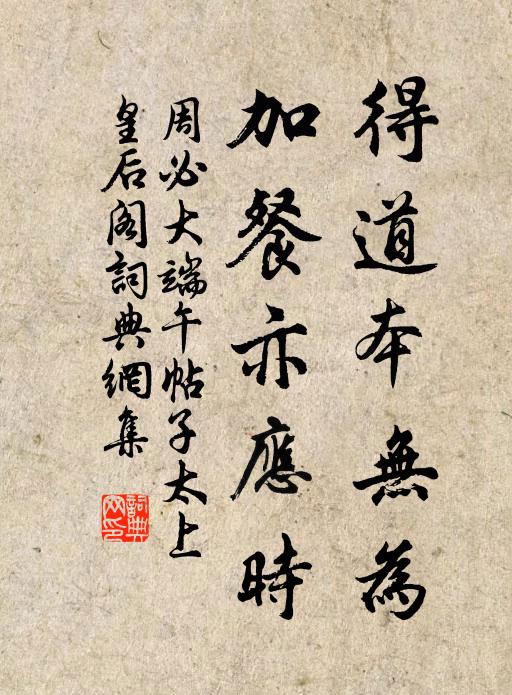 得道本無為
加餐亦應時
周必大端午帖子太上
皇后阁詞典網集
詞典网印